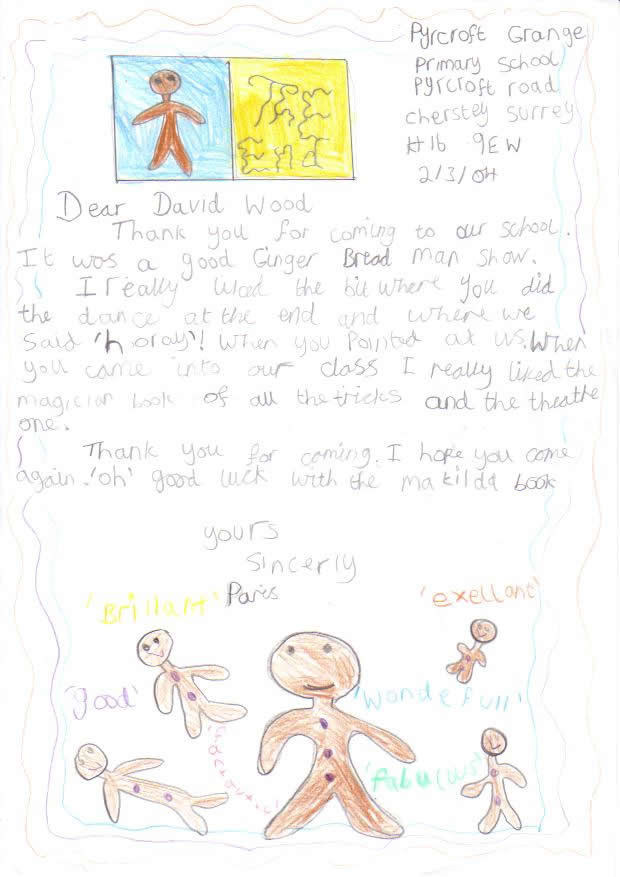 Pyrcroft Grange
Primary School
Pyrcroft road
cherstey surrey
9EW
2/3/04
The
End
Dear David Wood
Thank you for coming to our school.
It was a good Ginger Bread man show.
I really liked the bit where you did
the dance at the end and where we
said 'horay'! When you Pointed at us. When
you came into our class I really liked the
magician book of all the tricks and the theathe
one.
Thank you for coming. I hope you come
again. 'oh' good luck with the matilda book
yours
sincerly
Paris
'Brillant'
'exellant'
'good'
'wondefull'
'fabulus'